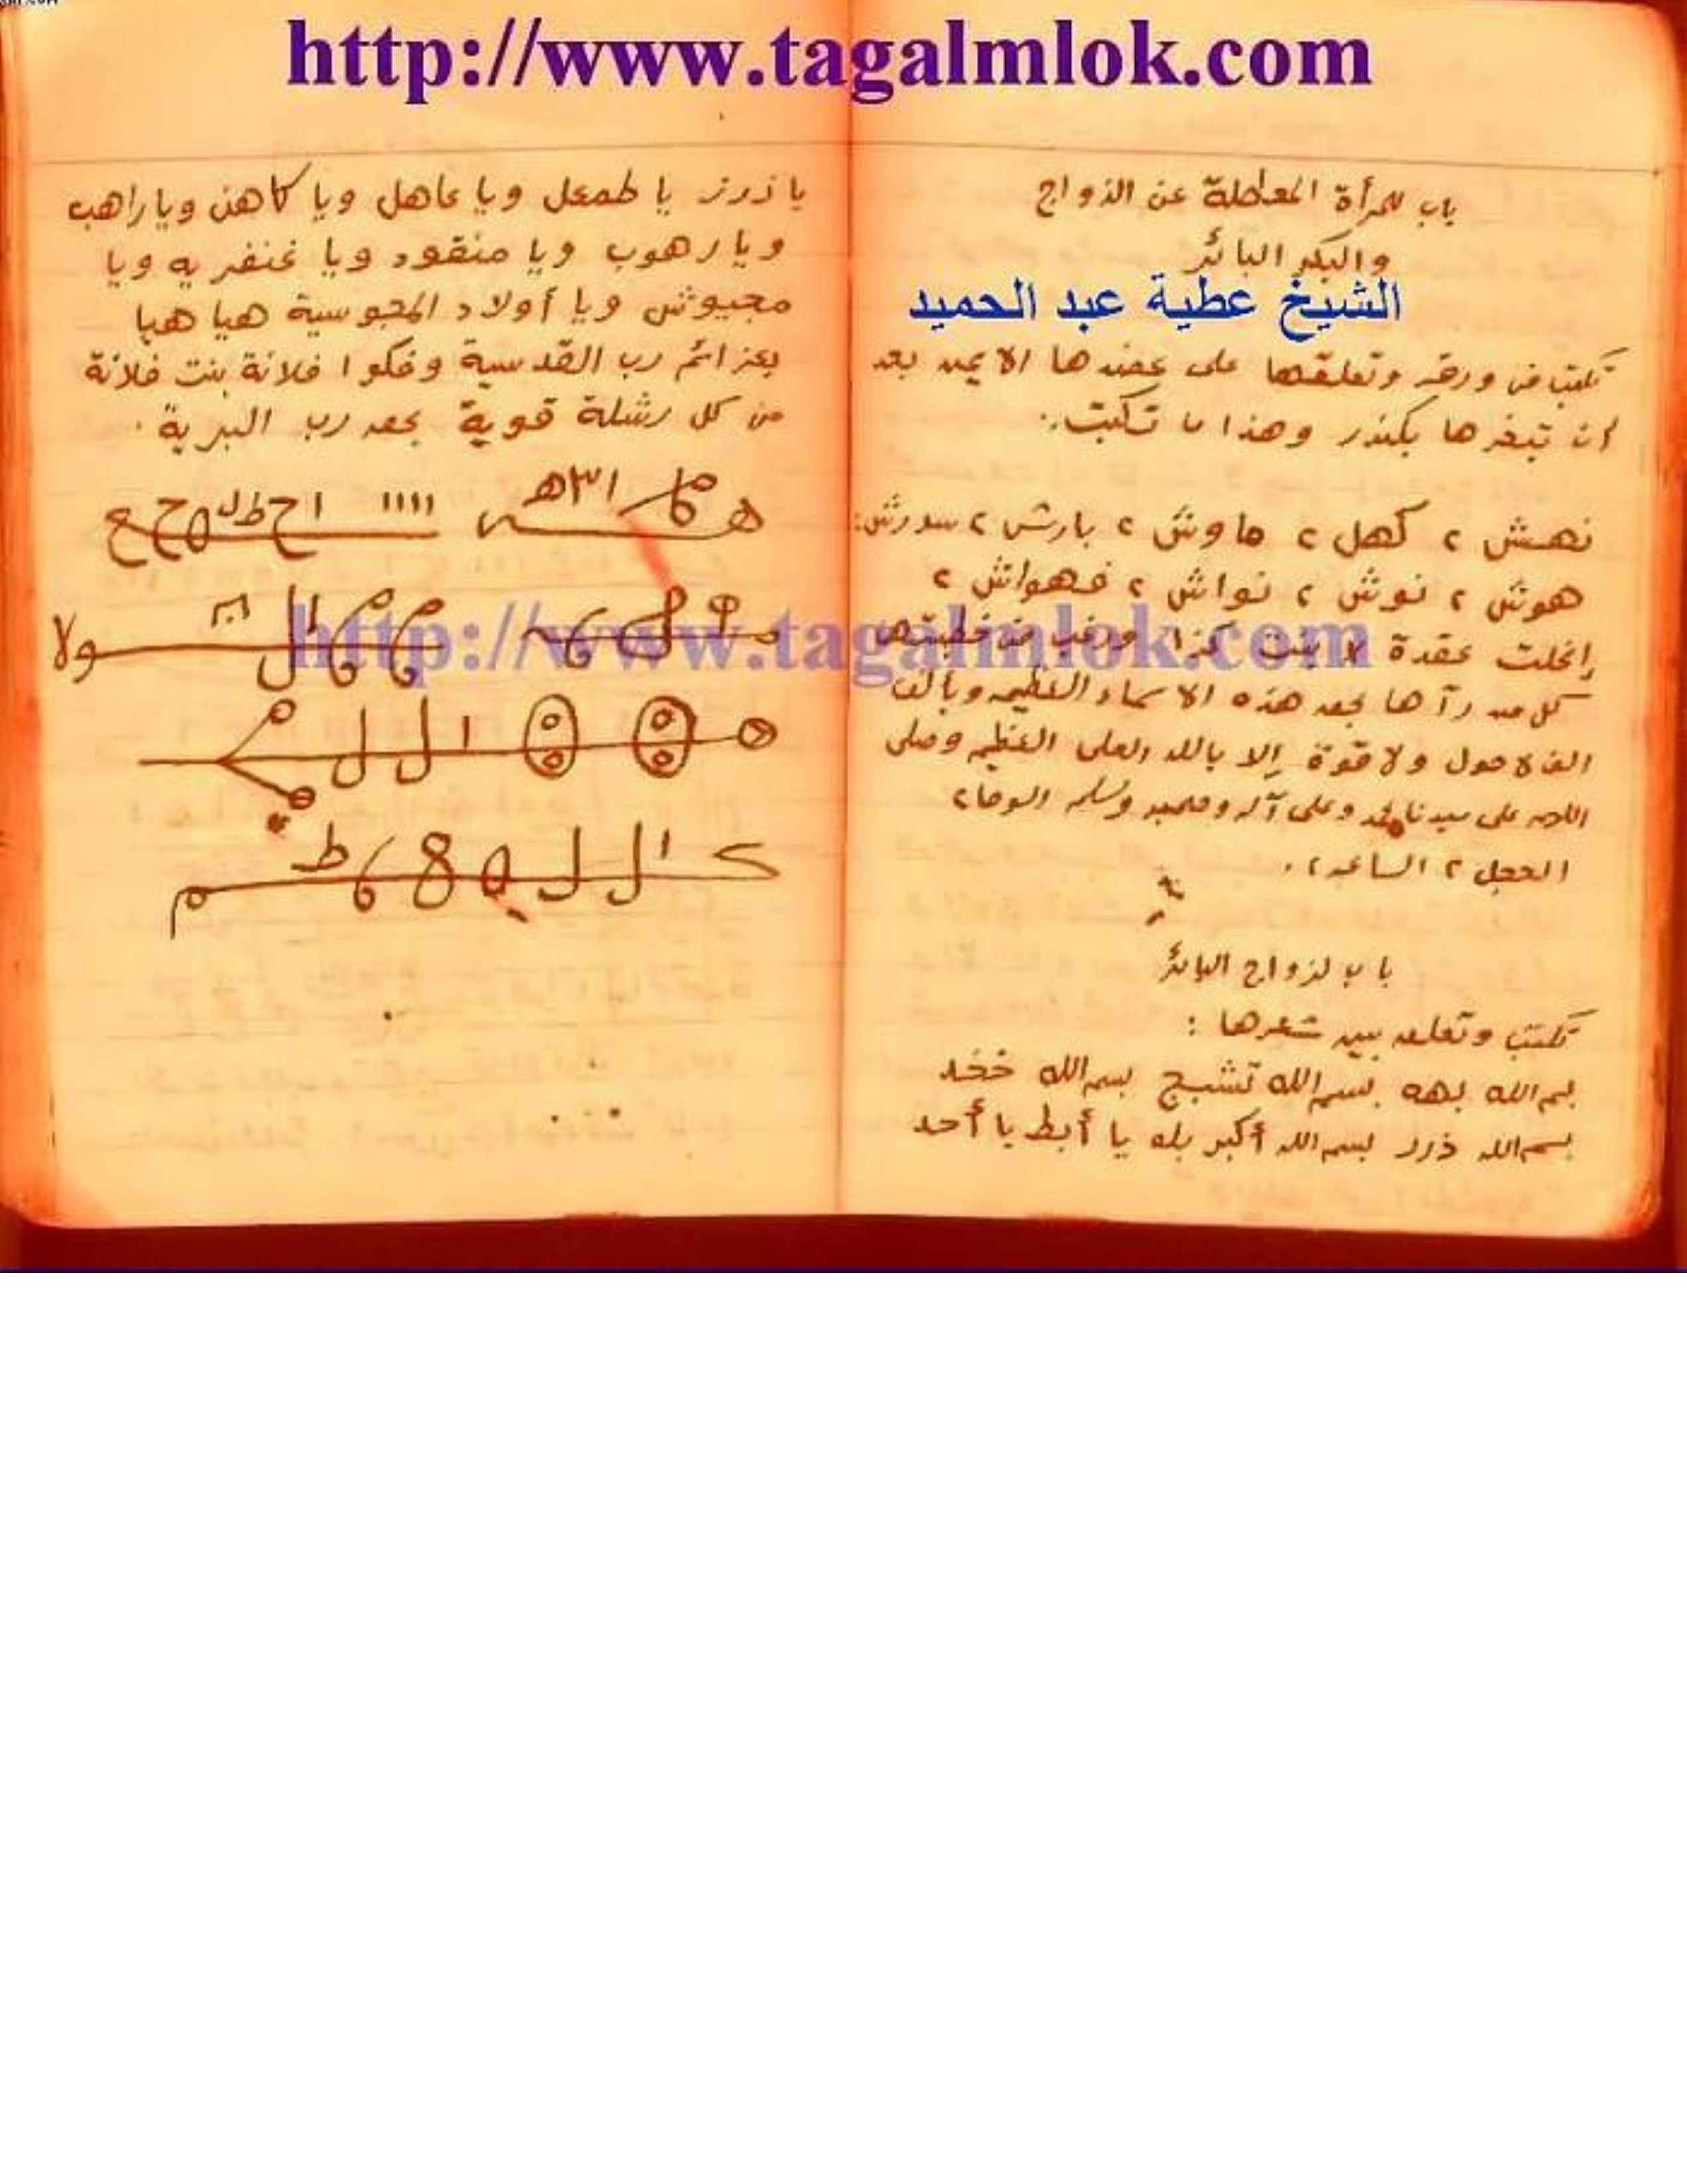 http://www.tagalmlok.com
باب للمرأة المعطلة عن الزواج
والبكر البائر
الشيخ عطية عبد الحميد
تكتب فى ورقه وتعلقها على عضدها الايمن بعد
ان تبخرها بكندر وهذا ما تكتب:
نهش ٢ كهل ٢ ماوش ٢ بارش ٢ سورش
هوش ٢ نوش ٢ نواش ٢ فهواش ٢
إنحلت عقدة بنت كذا ورغب فى خطبتها
كل من رآها بحق هذه الاسماء العظيمه وبألف
الف لا حول ولا قوة إلا بالله العلى العظيم وصلى
الله على سيدنا محمد وعلى آله وصحبه وسلم الوحا٢
العجل ٢ الساعه ٢.
باب لزواج البائر
تكتب وتعلق بين شعرها :
بسم الله بهه بسم الله تشبج بسم الله
بسم الله ذرر بسم الله أكبر بله يا أبط يا أحد
يا زرز يا طمعل ويا عاهل ويا كاهن ويا راهب
ويا رهوب ويا منقود ويا غنفريه ويا
مجيوش ويا أولاد المجوسية هيا هيا
بعزائم رب القدسية وفكوا فلانة بنت فلانة
من كل رشلة قوية بحق رب البرية.
http://www.tagalmlok.com